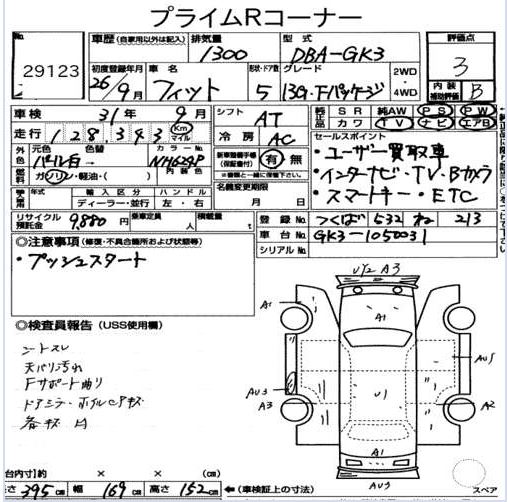 プライムRコーナー
No. 29123
車歴 (自家用以外は記入) 排気量 1300 型式 DBA-GK3 評価点 3
初度登録年月 26/9月 車名 フィット 形状・ドア数 5 グレード 13G・Fパッケージ 2WD・4WD 内装補助評価 B
車検 31年 9月 シフト AT 純正品 SR 純AW PS PW
走行 128,343 Km マイル 冷房 AC カワ TV ナビ エアB
外色 元色 パール白 色替 カラーNo. NH624P 内装色
燃料 ガソリン・軽油・( )
新車整備手帳(保証書) 有 無
セールスポイント
・ユーザー買取車
・インターナビ・TV・Bカメラ
・スマートキー・ETC
年式 輸入区分 ディーラー・並行 ハンドル 左・右
名義変更期限 月 日
リサイクル預託金 9,880円 乗車定員 人 積載量 t
登録No. つくば 532 ね 213
車台No. GK3-1050031
シリアルNo.
◎注意事項 (修復・不具合箇所および状態等)
・プッシュスタート
◎検査員報告 (USS使用欄)
シートスレ
天バリ汚れ
Fサポート曲り
ドアミラー・ホイルCPキズ
U2 A3
A1
A1
U1
AU3
A3
AU1
A2
A1
AU3
台内寸(約 × × (cm)
長さ 395 cm 幅 169 cm 高さ 152 cm ←(車検証上の寸法)
スペア